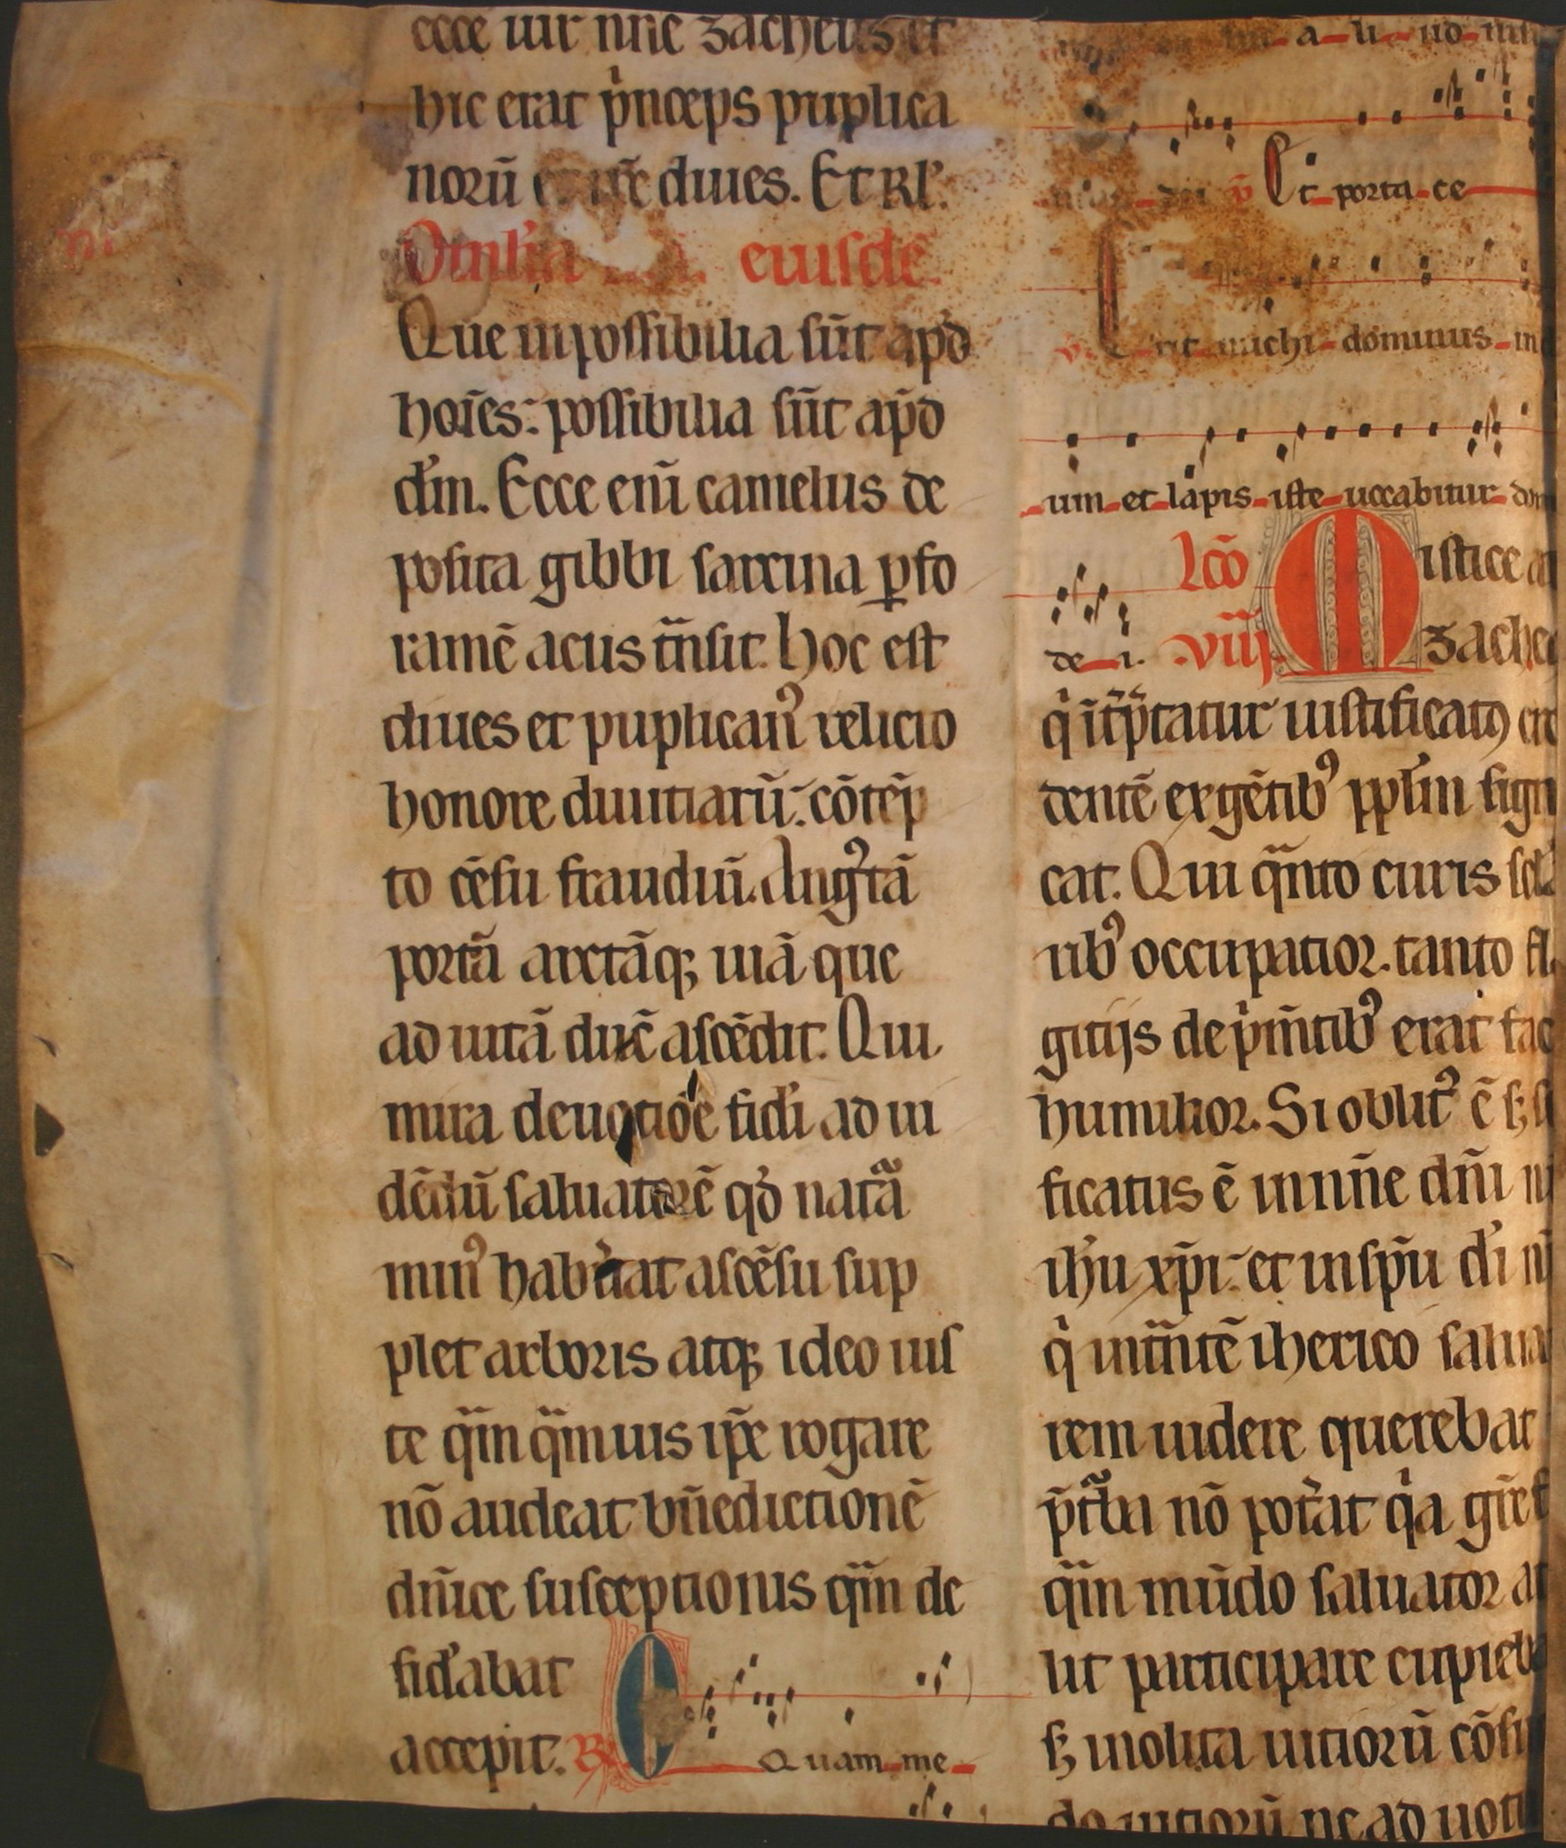 ecce uir nn̄e zacheus et
hic erat p̓nceps puplica
norū diues. Et rl̓.
Omlia eiusdē.
Que inpossibilia sūt apd̓
hoīes: possibilia sūt ap̄d
dm̄. Ecce eni̅ camelus de
posita gibbi sarcina ꝑfo
ramē acus t̄nsit. hoc est
diues et puplican᷒ relicto
honore diuitiarū: cōtēp
to cēsu fraudiū. Ang᷒tā
portā arctāqꝫ uiā que
ad uitā duc̄ ascēdit. Qui
mira deuotiōe fid̓i ad ui
dēdū saluatorē qd̓ natᷓa
min᷒ hab̓uat ascēsu sup
plet arboris atqꝫ ideo ius
te qᷓm qᷓmuis ip̄e rogare
nō audeat bn̄edictionē
dn̄ice susceptionis qᷓm de
sid̓abat
accepit. R̷ O Quam me
a u
v̄ Et porta ce
v̄ Erit michi dominus in
um et lapis iste uocabitur
de i.
Lc̄o viij. Mistice
zache
q̓ īt̄p̄tatur iustificatꝰ cre
dentē ex gētib᷒ ppl̄m sign
cat. Qui qᷓnto curis
rib᷒ occupatior. tanto fla
gitijs dep̓m̄tib᷒ erat fac
humilior. Si oblut᷒ ē sꝫ
ficatus ē in nn̄e dn̄i
ih̄u xp̄i: et in sp̄u d̓i
q̓ int̄ntē iherico salua
rem uidere querebat
p̄ tᷓba nō pot̓at q̓a gr̄e
qᷓm mūdo saluator
lit participare cupieb
sꝫ inolita uitiorū cōsu
do uitiorū ne ad uoti